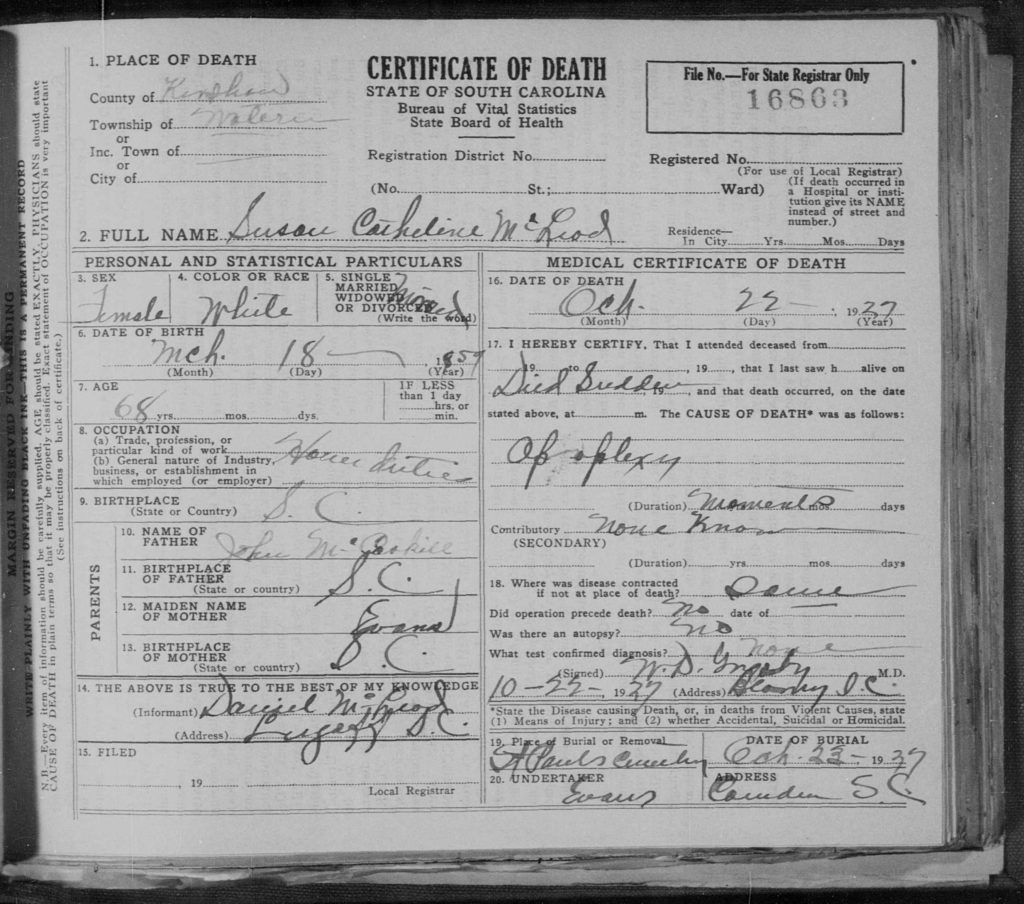 MARGIN RESERVED FOR BINDING
WRITE PLAINLY WITH UNFADING BLACK INK—THIS IS A PERMANENT RECORD
N.B.—Every item of information should be carefully supplied. AGE should be stated EXACTLY. PHYSICIANS should state
CAUSE OF DEATH in plain terms so that it may be properly classified. Exact statement of OCCUPATION is very important
(See instructions on back of certificate.)
1. PLACE OF DEATH
County of Kershaw
Township of Wateree
or
Inc. Town of
or
City of
CERTIFICATE OF DEATH
STATE OF SOUTH CAROLINA
Bureau of Vital Statistics
State Board of Health
File No.—For State Registrar Only
16863
Registration District No.
Registered No.
(For use of Local Registrar)
(No. St.; Ward)
(If death occurred in
a Hospital or insti-
tution give its NAME
instead of street and
number.)
2. FULL NAME Susan Catheline McLeod
Residence—
In City Yrs. Mos. Days
PERSONAL AND STATISTICAL PARTICULARS
3. SEX
Female
4. COLOR OR RACE
White
5. SINGLE
MARRIED
WIDOWED
OR DIVORCED
(Write the word)
6. DATE OF BIRTH
Mch. 18 1859
(Month) (Day) (Year)
7. AGE
68 yrs. mos. dys.
IF LESS
than 1 day
hrs. or
min.
8. OCCUPATION
(a) Trade, profession, or
particular kind of work
(b) General nature of Industry,
business, or establishment in
which employed (or employer)
9. BIRTHPLACE
(State or Country) S. C.
PARENTS
10. NAME OF
FATHER John McCaskill
11. BIRTHPLACE
OF FATHER
(State or country) S. C.
12. MAIDEN NAME
OF MOTHER Evans
13. BIRTHPLACE
OF MOTHER
(State or country) S. C.
14. THE ABOVE IS TRUE TO THE BEST OF MY KNOWLEDGE
(Informant) Daniel McLeod
(Address) Lugoff S.C.
15. FILED
19
Local Registrar
MEDICAL CERTIFICATE OF DEATH
16. DATE OF DEATH
Oct. 22 , 1927
(Month) (Day) (Year)
17. I HEREBY CERTIFY, That I attended deceased from
19 to , 19 , that I last saw h alive on
Died Sudden 19 , and that death occurred, on the date
stated above, at m. The CAUSE OF DEATH* was as follows:
Apoplexy
(Duration) Moments mos days
Contributory None Know
(SECONDARY)
(Duration) yrs. mos. days
18. Where was disease contracted
if not at place of death? Same
Did operation precede death? No date of
Was there an autopsy? No
What test confirmed diagnosis? None
(Signed) W. D. M.D.
10-22-, 1927 (Address) Blaney S C
*State the Disease causing Death, or, in deaths from Violent Causes, state
(1) Means of Injury; and (2) whether Accidental, Suicidal or Homicidal.
19. Place of Burial or Removal
St Pauls
DATE OF BURIAL
Oct. 23- 1927
20. UNDERTAKER
Evans
ADDRESS
Camden S.C.